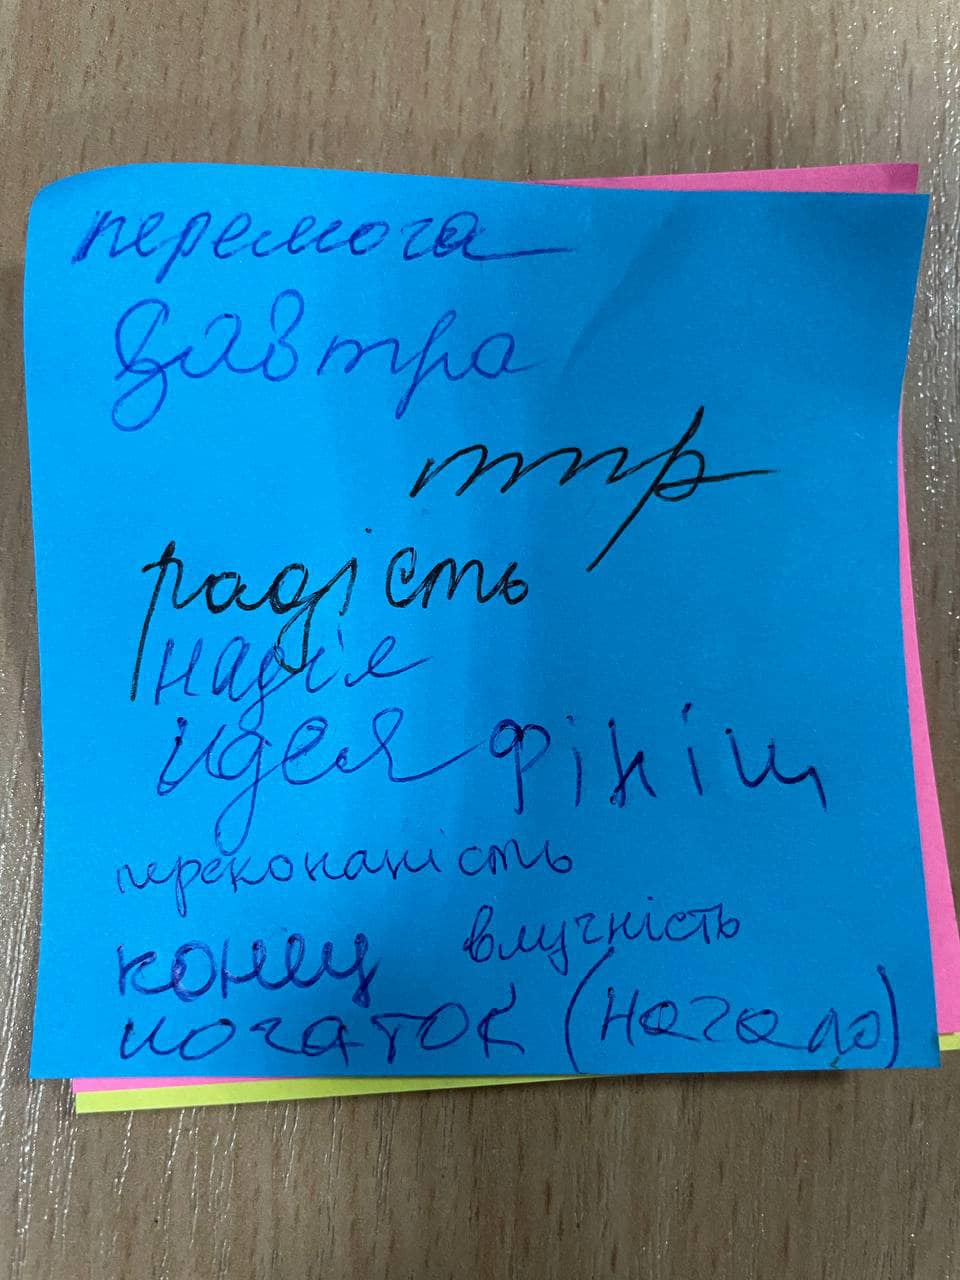 перемога
завтра
тпр
радість
надія
идея фініш
переконаність
конец влучність
початок (начало)